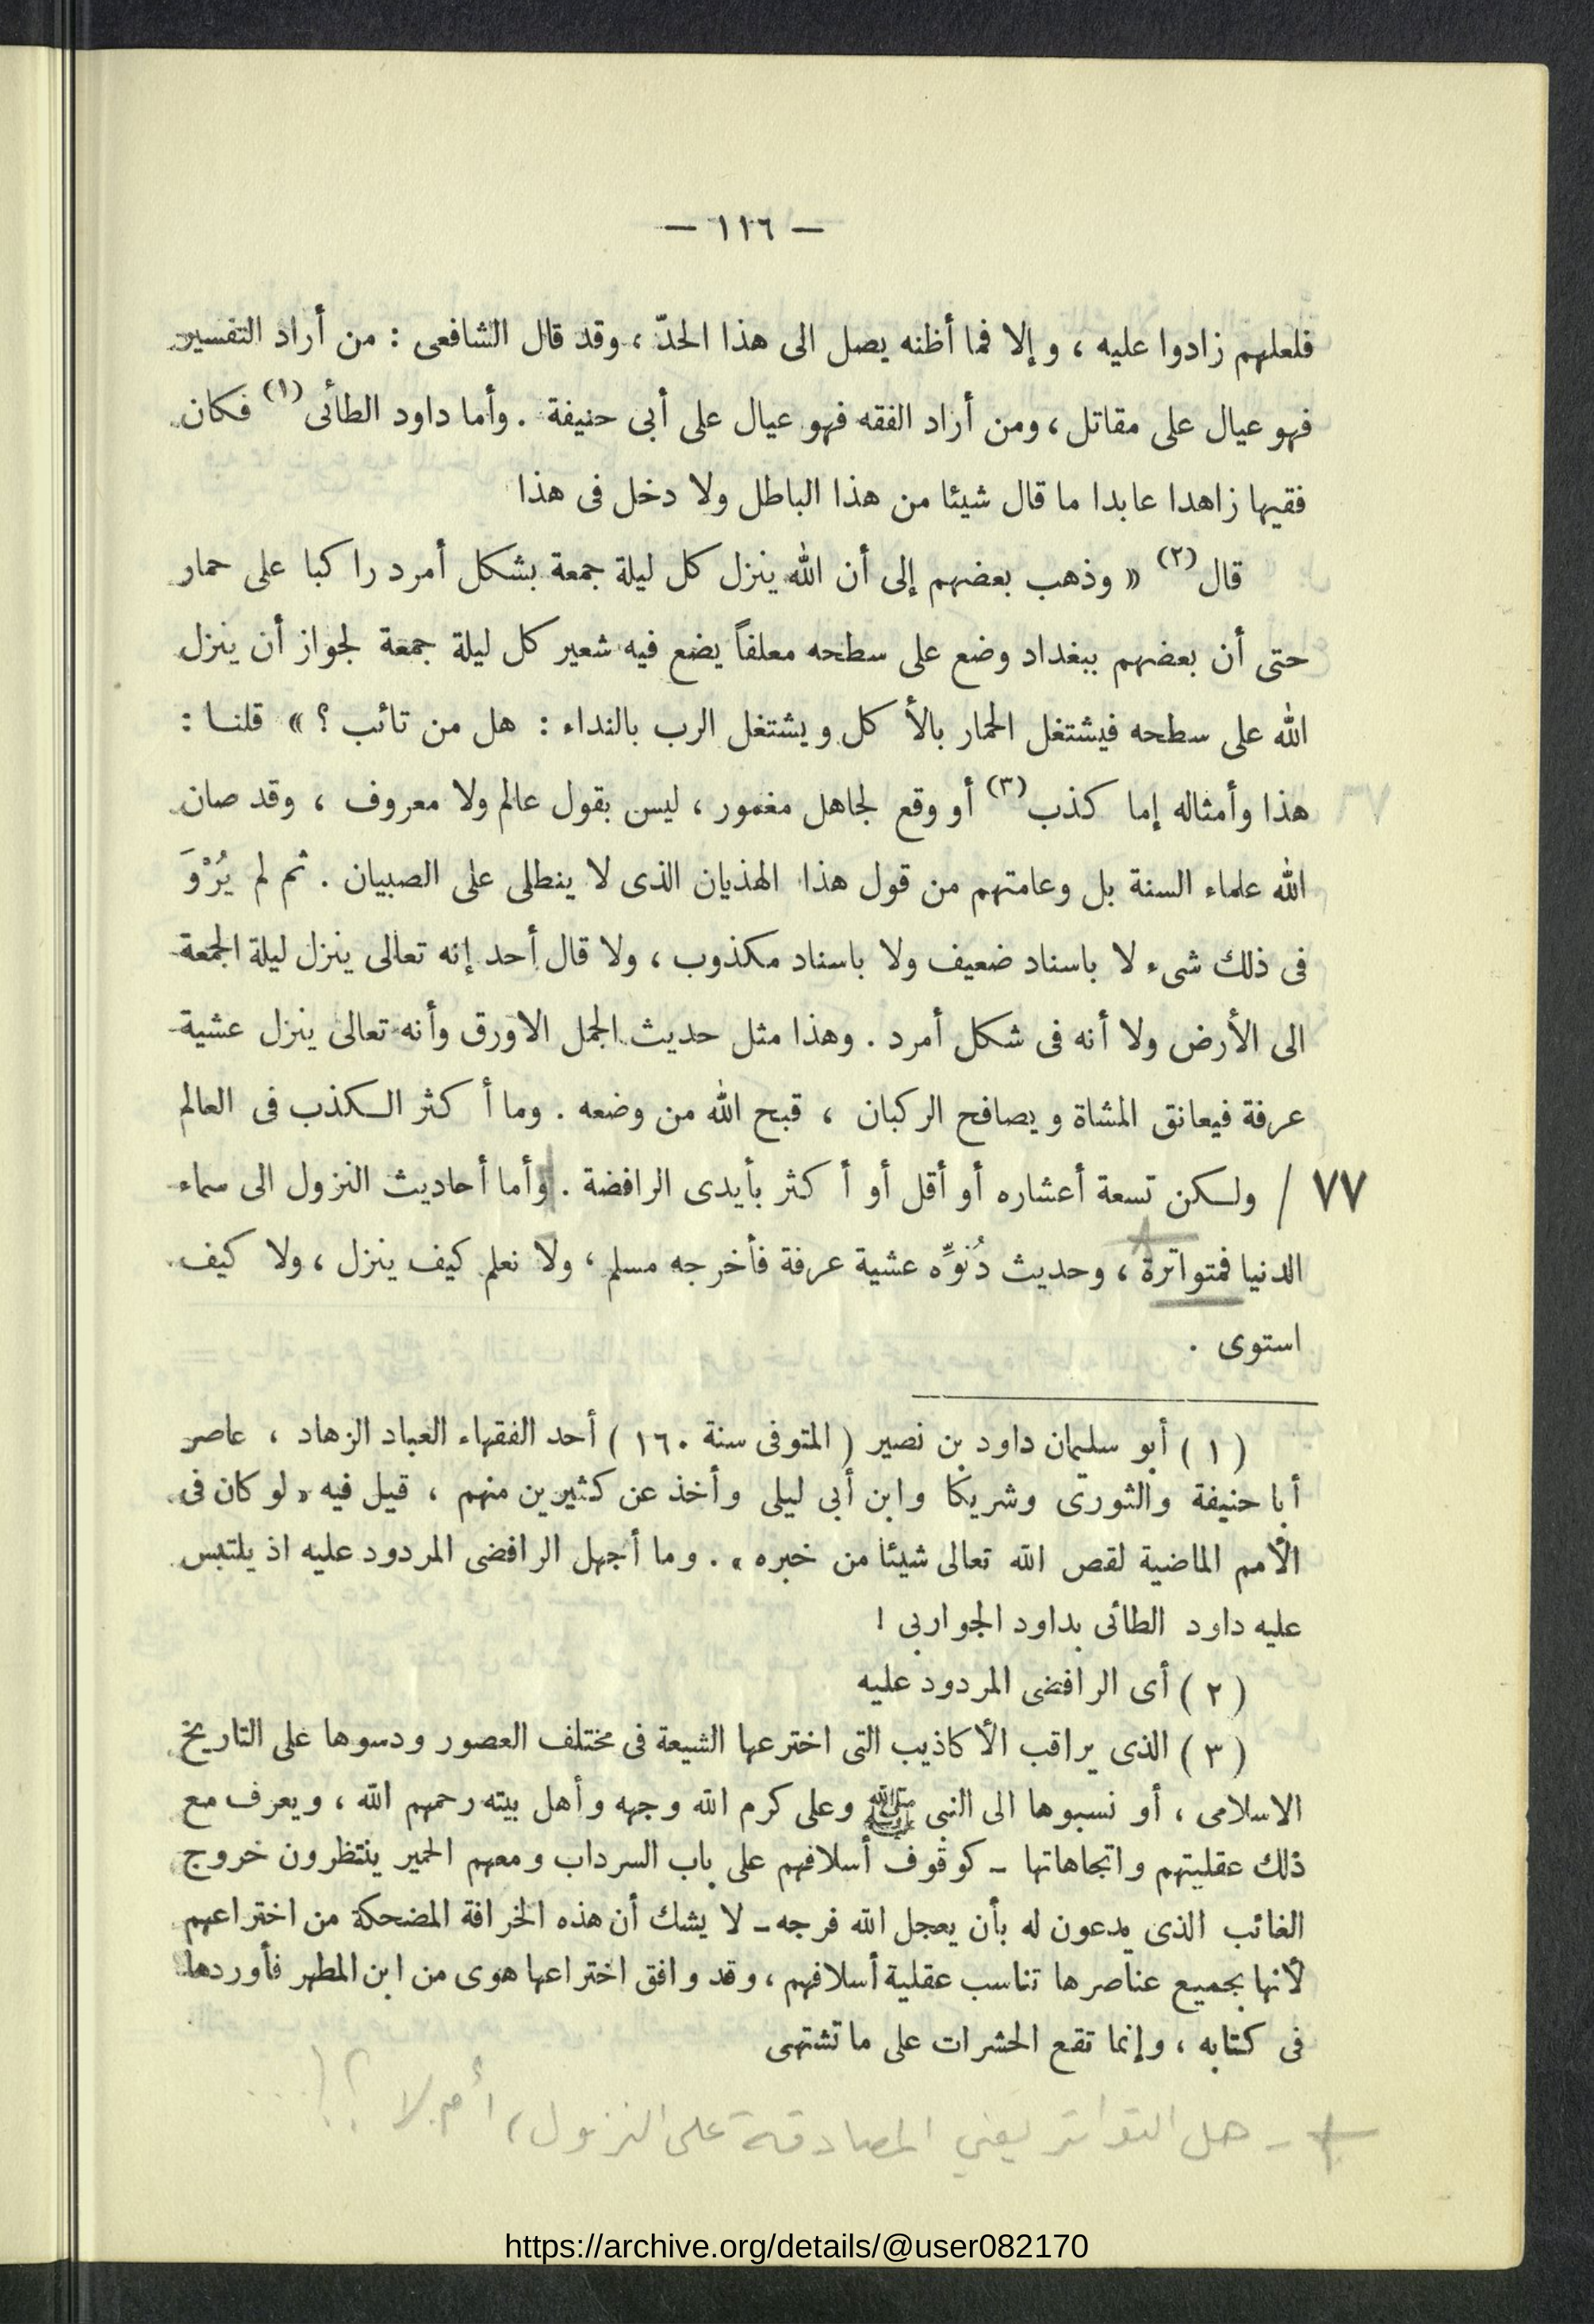 — ١١٦ —
فلعلهم زادوا عليه ، و إلا فما أظنه يصل الى هذا الحدّ ، وقد قال الشافعى : من أراد التفسير
فهو عيال على مقاتل ، ومن أراد الفقه فهو عيال على أبى حنيفة . وأما داود الطائى (١) فكان
فقيها زاهدا عابدا ما قال شيئا من هذا الباطل ولا دخل فى هذا
قال (٢) « وذهب بعضهم إلى أن الله ينزل كل ليلة جمعة بشكل أمرد راكبا على حمار
حتى أن بعضهم ببغداد وضع على سطحه معلفاً يضع فيه شعير كل ليلة جمعة لجواز أن ينزل
الله على سطحه فيشتغل الحمار بالأكل ويشتغل الرب بالنداء : هل من تائب ؟ » قلنا :
هذا وأمثاله إما كذب (٣) أو وقع لجاهل مغمور ، ليس بقول عالم ولا معروف ، وقد صان
الله علماء السنة بل وعامتهم من قول هذا الهذيان الذى لا ينطلى على الصبيان . ثم لم يُرْوَ
فى ذلك شىء لا باسناد ضعيف ولا باسناد مكذوب ، ولا قال أحد إنه تعالى ينزل ليلة الجمعة
الى الأرض ولا أنه فى شكل أمرد . وهذا مثل حديث الجمل الاورق وأنه تعالى ينزل عشية
عرفة فيعانق المشاة ويصافح الركبان ، قبح الله من وضعه . وما أكثر الكذب فى العالم
٧٧ / ولكن تسعة أعشاره أو أقل أو أكثر بأيدى الرافضة . وأما أحاديث النزول الى سماء
الدنيا فمتواترة ، وحديث دُنوِّه عشية عرفة فأخرجه مسلم ، ولا نعلم كيف ينزل ، ولا كيف
استوى .
( ١ ) أبو سليمان داود بن نصير ( المتوفى سنة ١٦٠ ) أحد الفقهاء العباد الزهاد ، عاصر
أبا حنيفة والثورى وشريكا وابن أبى ليلى وأخذ عن كثيرين منهم ، قيل فيه « لو كان فى
الأمم الماضية لقص الله تعالى شيئا من خبره » . وما أجهل الرافضى المردود عليه اذ يلتبس
عليه داود الطائى بداود الجواربى !
( ٢ ) أى الرافضى المردود عليه
( ٣ ) الذى يراقب الأكاذيب التى اخترعها الشيعة فى مختلف العصور ودسوها على التاريخ
الاسلامى ، أو نسبوها الى النبى ﷺ وعلى كرم الله وجهه وأهل بيته رحمهم الله ، ويعرف مع
ذلك عقليتهم واتجاهاتها - كوقوف أسلافهم على باب السرداب ومعهم الحمير ينتظرون خروج
الغائب الذى يدعون له بأن يعجل الله فرجه - لا يشك أن هذه الخرافة المضحكة من اختراعهم
لأنها بجميع عناصرها تناسب عقلية أسلافهم ، وقد وافق اختراعها هوى من ابن المطهر فأوردها
فى كتابه ، وإنما تقع الحشرات على ما تشتهى
+ - هل التواتر يعني المصادقة على النزول ، أم لا ؟! ...
https://archive.org/details/@user082170